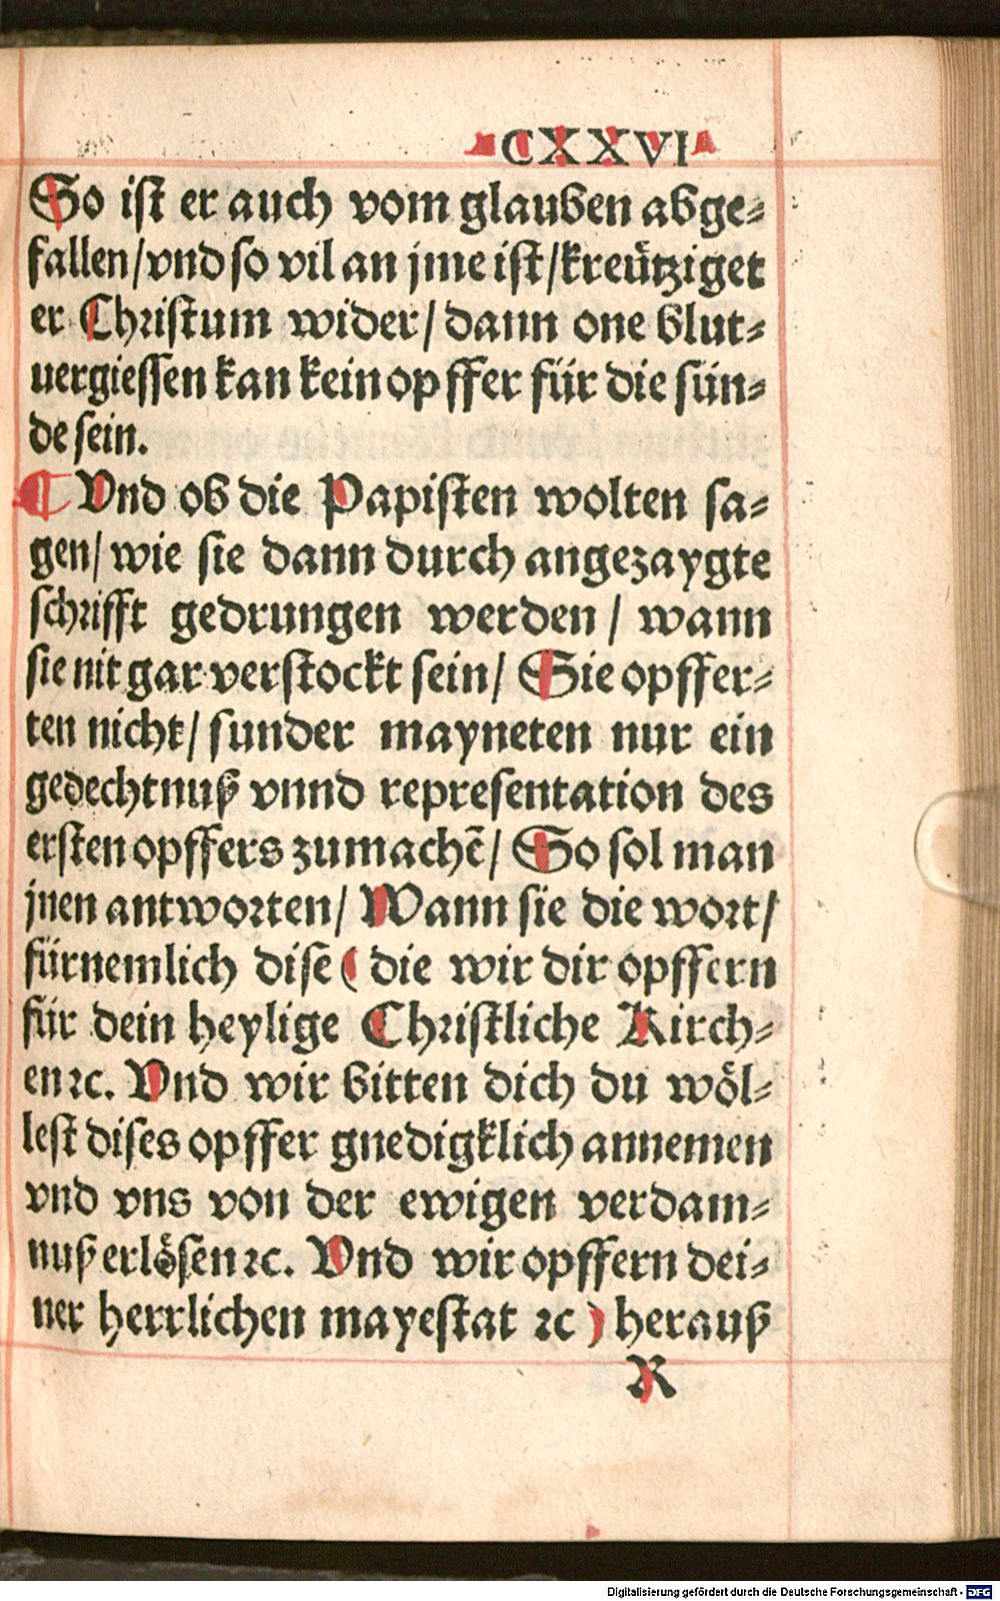 CXXVI
So ist er auch vom glauben abge-
fallen/vnd so vil an jme ist/kreützīget
er Christum wider/ dann one blut-
uergiessen kan kein opffer für die sün-
de sein.
¶ Vnd ob die Papisten wolten sa-
gen/ wie sie dann durch angezaygte
schrifft gedrungen werden / wann
sie nit gar verstockt sein/ Sie opffer-
ten nicht/ sunder mayneten nur ein
gedechtnuß vnnd representation des
ersten opffers zumachē/ So sol man
jnen antworten/ Wann sie die wort/
fürnemlich dise ( die wir dir opffern
für dein heylige Christliche Kirch-
en ⁊c. Vnd wir bitten dich du wöl-
lest dises opffer gnedigklich annemen
vnd vns von der ewigen verdam-
nuß erlösen ⁊c. Vnd wir opffern dei-
ner herrlichen mayestat ⁊c ) herauß
R
Digitalisierung gefördert durch die Deutsche Forschungsgemeinschaft - DFG